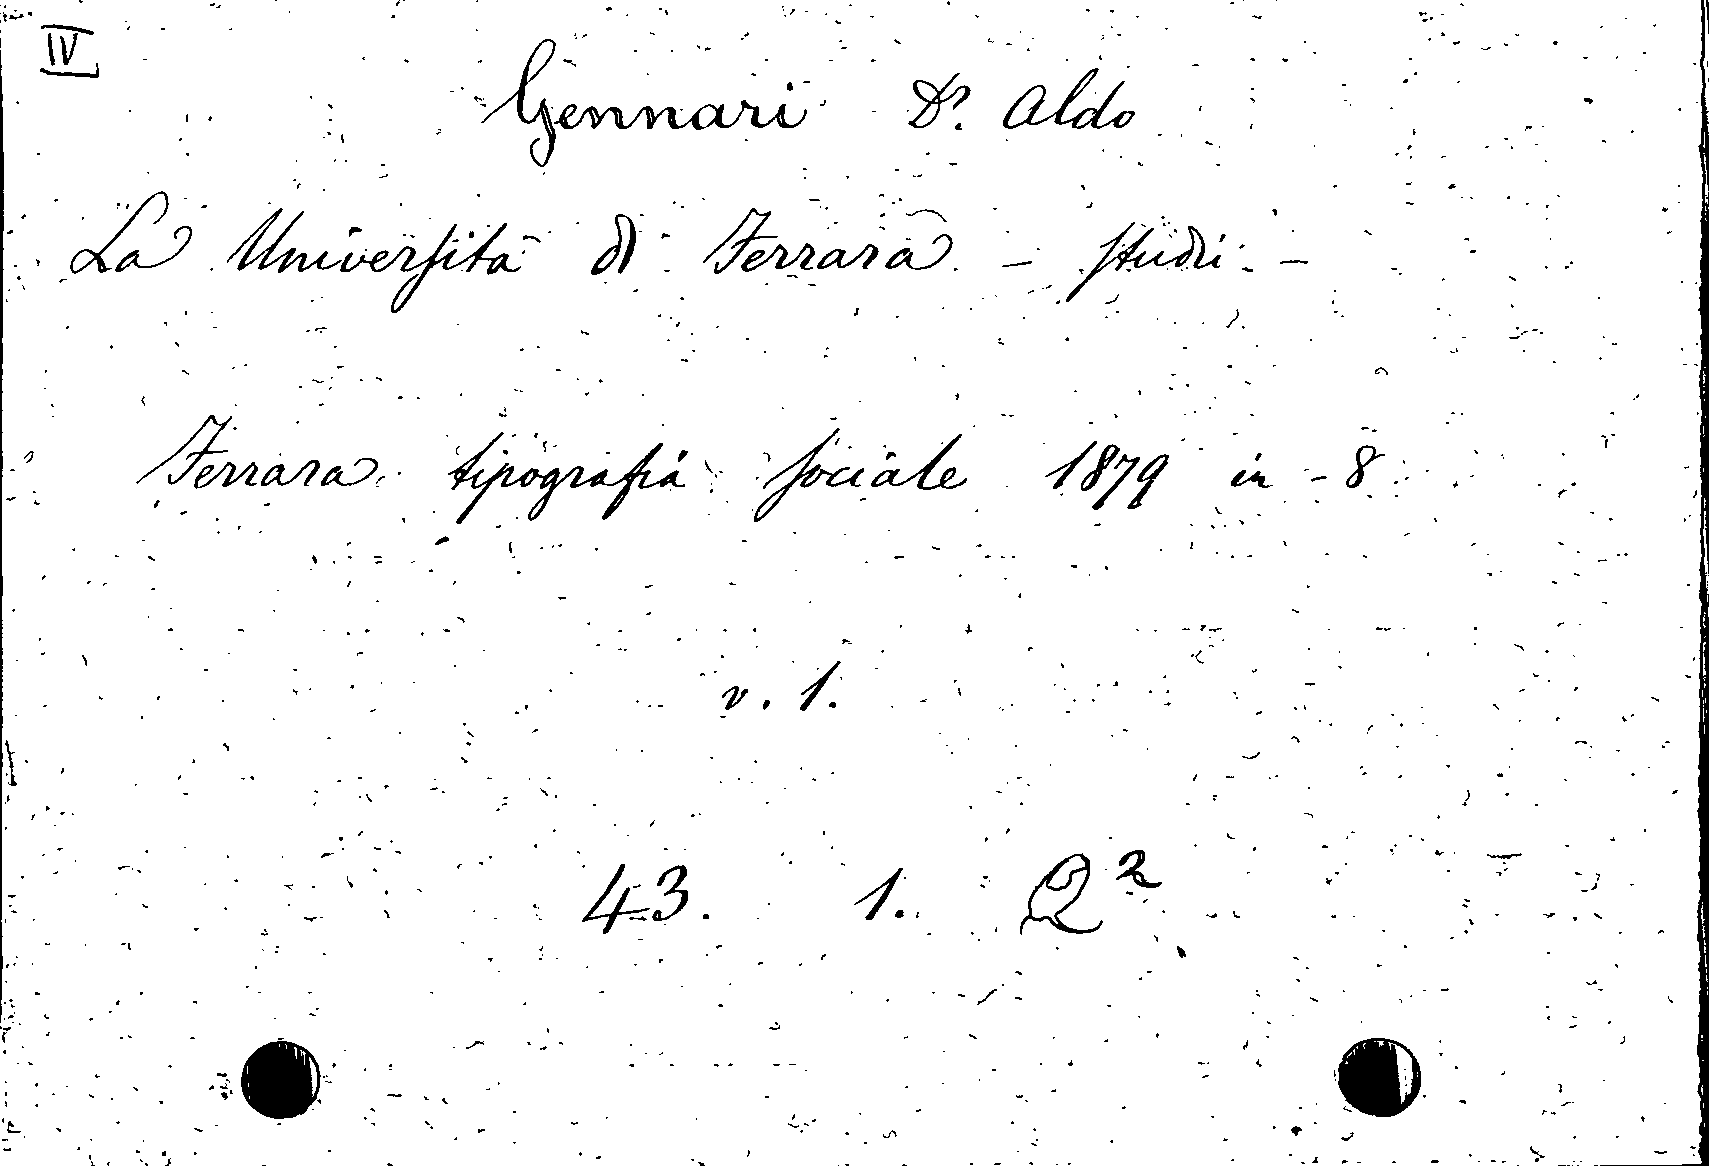 IV
Gennari Dr. Aldo
La Università di Ferrara - studii -
Ferrara tipografia sociale 1879 in - 8
v. 1.
43. 1. Q²